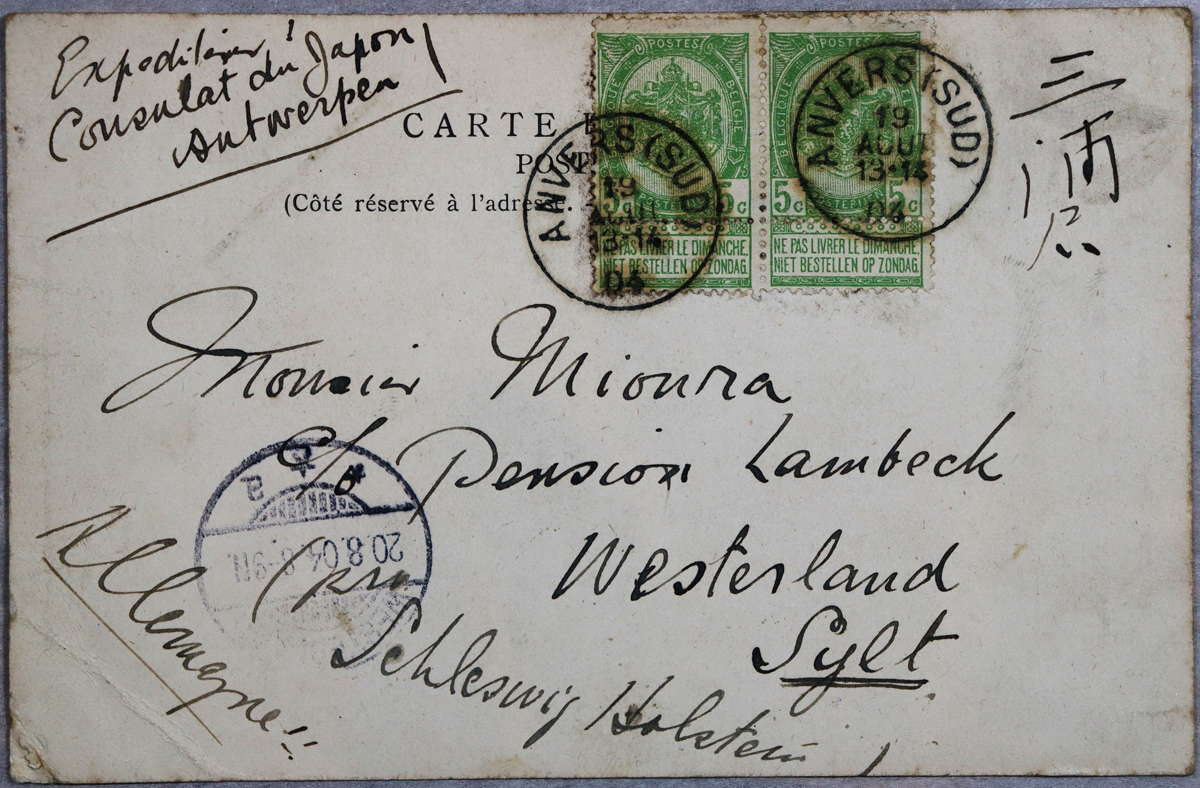 Expéditeur!
Consulat du Japon
Antwerpen
CARTE
POST
(Côté réservé à l'adresse.
POSTES
BELGIE
5c 5c
NE PAS LIVRER LE DIMANCHE.
NIET BESTELLEN OP ZONDAG.
POSTES
BELGIQUE
5c 5c
NE PAS LIVRER LE DIMANCHE.
NIET BESTELLEN OP ZONDAG.
ANVERS (SUD)
19
AOUT
13-14
04
ANVERS (SUD)
19
AOUT
13-14
04
三浦
Monsieur Mioura
c/o Pension Lambeck
Westerland
Sylt
(pru
Schleswig Holstein)
Allemagne!!
20.8.04.8-9N.